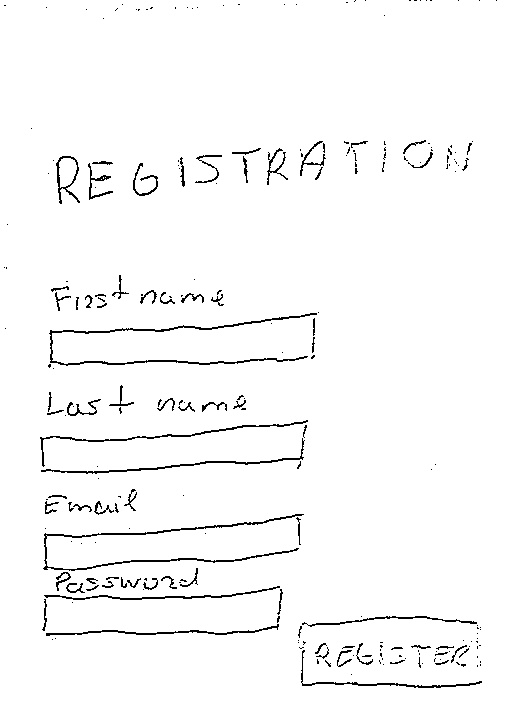 REGISTRATION
First name
Last name
Email
Password
REGISTER